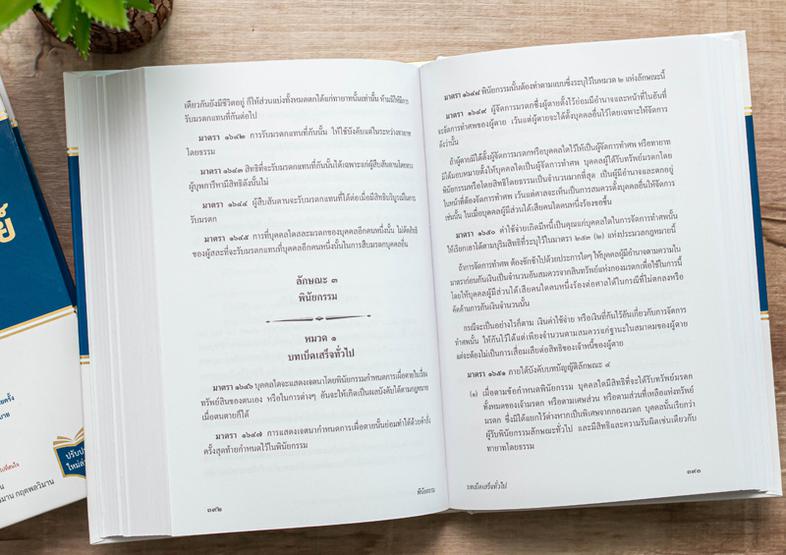 เดียวกันยังมีชีวิตอยู่ ก็ให้ส่วนแบ่งทั้งหมดตกได้แก่ทายาทนั้นเท่านั้น ห้ามมิให้มีการ
รับมรดกแทนที่กันต่อไป
มาตรา ๑๖๔๒ การรับมรดกแทนที่กันนั้น ให้ใช้บังคับแต่ในระหว่างทายาท
โดยธรรม
มาตรา ๑๖๔๓ สิทธิที่จะรับมรดกแทนที่กันนั้นได้เฉพาะแก่ผู้สืบสันดานโดยตรง
ผู้บุพการีหามีสิทธิดังนั้นไม่
มาตรา ๑๖๔๔ ผู้สืบสันดานจะรับมรดกแทนที่ได้ต่อเมื่อมีสิทธิบริบูรณ์ในการ
รับมรดก
มาตรา ๑๖๔๕ การที่บุคคลใดสละมรดกของบุคคลอีกคนหนึ่งนั้น ไม่ตัดสิทธิ
ของผู้สละที่จะรับมรดกแทนที่บุคคลอีกคนหนึ่งนั้นในการสืบมรดกบุคคลอื่น
ลักษณะ ๓
พินัยกรรม
หมวด ๑
บทเบ็ดเสร็จทั่วไป
มาตรา ๑๖๔๖ บุคคลใดจะแสดงเจตนาโดยพินัยกรรมกำหนดการเผื่อตายในเรื่อง
ทรัพย์สินของตนเอง หรือในการต่างๆ อันจะให้เกิดเป็นผลบังคับได้ตามกฎหมาย
เมื่อตนตายก็ได้
มาตรา ๑๖๔๗ การแสดงเจตนากำหนดการเผื่อตายนั้นย่อมทำได้ด้วยคำสั่ง
ครั้งสุดท้ายกำหนดไว้ในพินัยกรรม
๓๙๒
พินัยกรรม
มาตรา ๑๖๔๘ พินัยกรรมนั้นต้องทำตามแบบซึ่งระบุไว้ในหมวด ๒ แห่งลักษณะนี้
มาตรา ๑๖๔๙ ผู้จัดการมรดกซึ่งผู้ตายตั้งไว้ย่อมมีอำนาจและหน้าที่ในอันที่
จะจัดการทำศพของผู้ตาย เว้นแต่ผู้ตายจะได้ตั้งบุคคลอื่นไว้โดยเฉพาะให้จัดการ
ดังว่านั้น
ถ้าผู้ตายมิได้ตั้งผู้จัดการมรดกหรือบุคคลใดไว้ให้เป็นผู้จัดการทำศพ หรือทายาท
มิได้มอบหมายตั้งให้บุคคลใดเป็นผู้จัดการทำศพ บุคคลผู้ได้รับทรัพย์มรดกโดย
พินัยกรรมหรือโดยสิทธิโดยธรรมเป็นจำนวนมากที่สุด เป็นผู้มีอำนาจและตกอยู่
ในหน้าที่ต้องจัดการทำศพ เว้นแต่ศาลจะเห็นเป็นการสมควรตั้งบุคคลอื่นให้จัดการ
เช่นนั้น ในเมื่อบุคคลผู้มีส่วนได้เสียคนใดคนหนึ่งร้องขอขึ้น
มาตรา ๑๖๕๐ ค่าใช้จ่ายเกิดมีหนี้เป็นคุณแก่บุคคลใดในการจัดการทำศพนั้น
ให้เรียกเอาได้ตามบุริมสิทธิที่ระบุไว้ในมาตรา ๒๕๓ (๒) แห่งประมวลกฎหมายนี้
ถ้าการจัดการทำศพ ต้องชักช้าไปด้วยประการใดๆ ให้บุคคลผู้มีอำนาจตามความใน
มาตราก่อนกันเงินเป็นจำนวนอันสมควรจากสินทรัพย์แห่งกองมรดกเพื่อใช้ในการนี้
โดยให้บุคคลผู้มีส่วนได้เสียคนใดคนหนึ่งร้องต่อศาลได้ในกรณีที่ไม่ตกลงหรือ
คัดค้านการกันเงินจำนวนนั้น
กรณีจะเป็นอย่างไรก็ตาม เงินค่าใช้จ่าย หรือเงินที่กันไว้อันเกี่ยวกับการจัดการ
ทำศพนั้น ให้กันไว้ได้แต่เพียงจำนวนตามสมควรแก่ฐานะในสมาคมของผู้ตาย
แต่จะต้องไม่เป็นการเสื่อมเสียต่อสิทธิของเจ้าหนี้ของผู้ตาย
มาตรา ๑๖๕๑ ภายใต้บังคับบทบัญญัติลักษณะ ๔
(๑) เมื่อตามข้อกำหนดพินัยกรรม บุคคลใดมีสิทธิที่จะได้รับทรัพย์มรดก
ทั้งหมดของเจ้ามรดก หรือตามเศษส่วน หรือตามส่วนที่เหลือแห่งทรัพย์
มรดก ซึ่งมิได้แยกไว้ต่างหากเป็นพิเศษจากกองมรดก บุคคลนั้นเรียกว่า
ผู้รับพินัยกรรมลักษณะทั่วไป และมีสิทธิและความรับผิดเช่นเดียวกับ
ทายาทโดยธรรม
บทเบ็ดเสร็จทั่วไป
๓๙๓